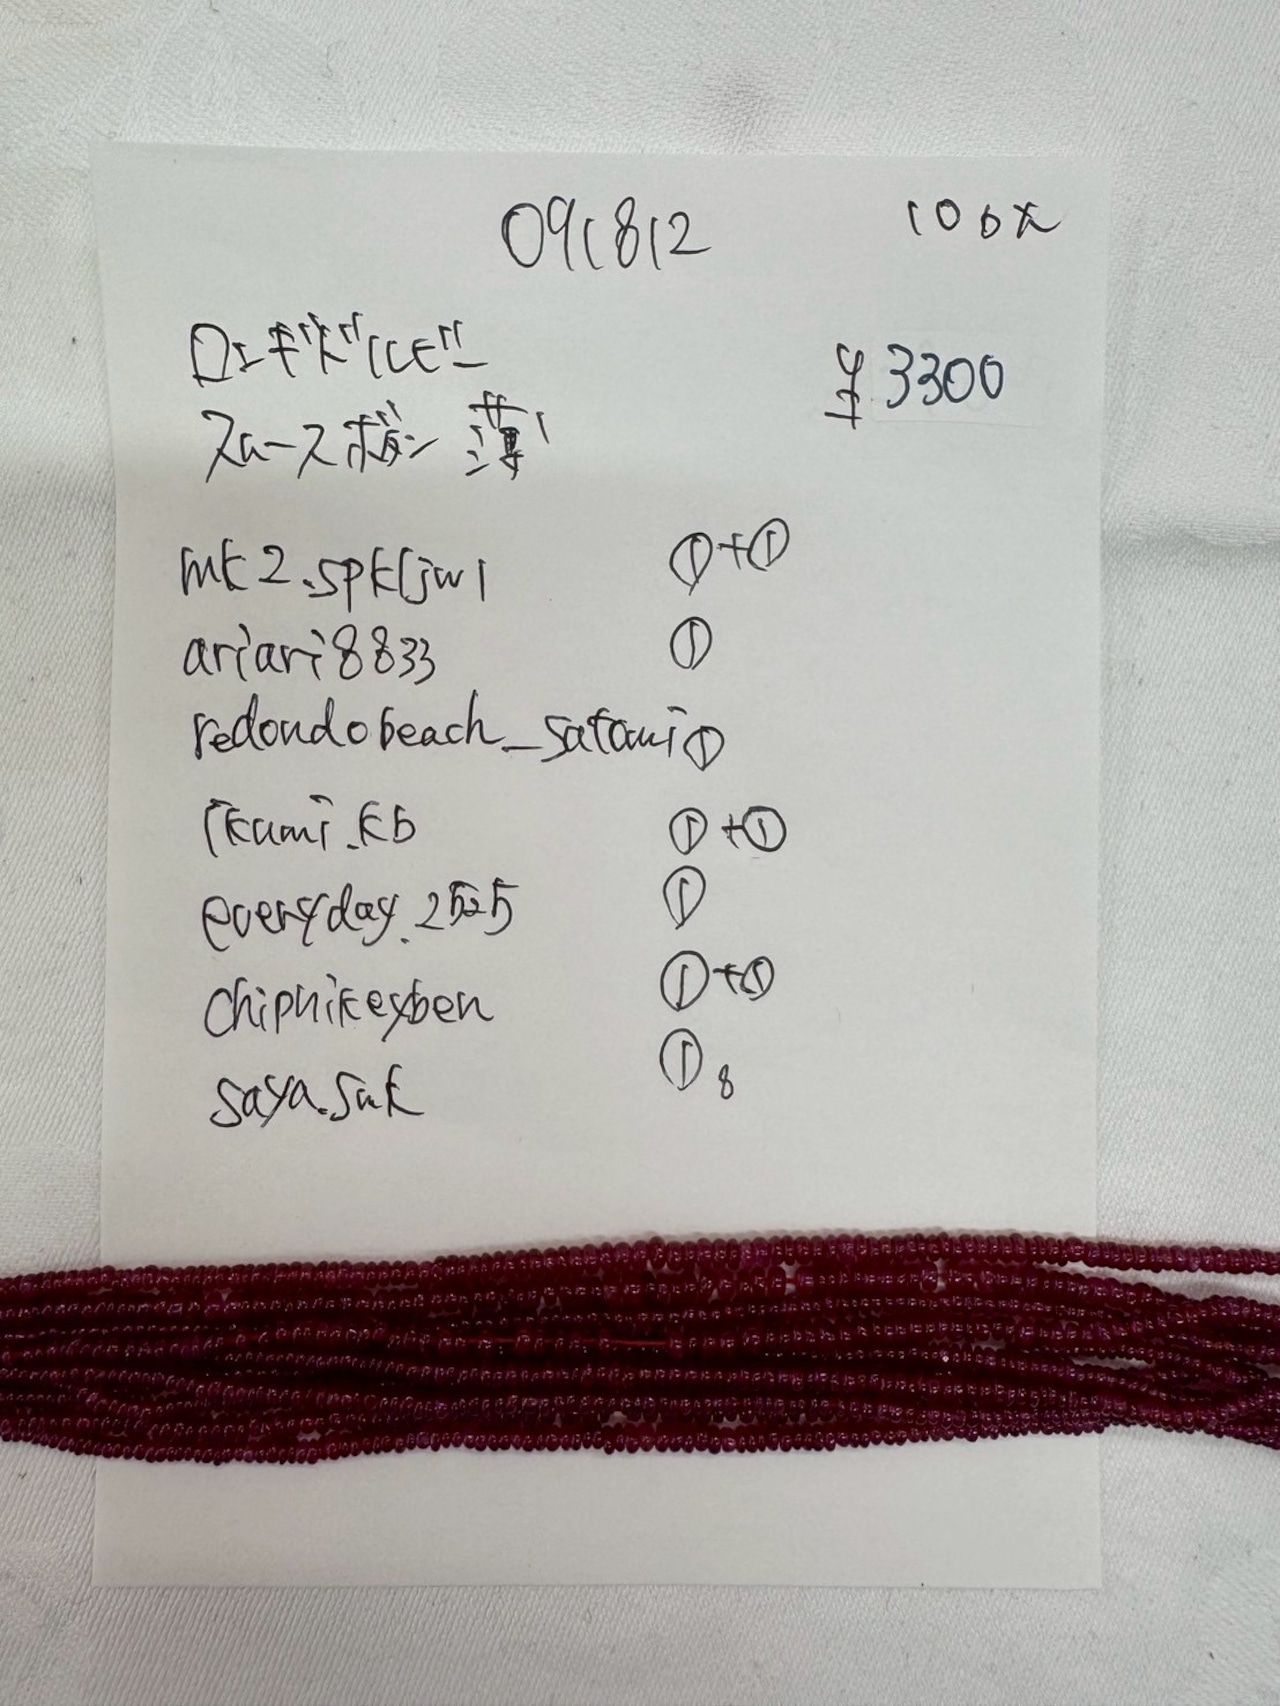 091812 10コ
ロンギドルビー
スムースボタン 薄 ¥3300
mk2.spkljw1 ①+①
ariari8833 ①
redondobeach_satomi ①
ikumi.kb ①+①
everyday.2525 ①
chipnikeyben ①+①
saya.suk ① 8